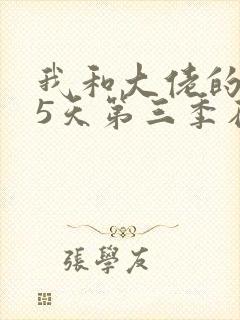 我和大佬的
5天第三季
張學友